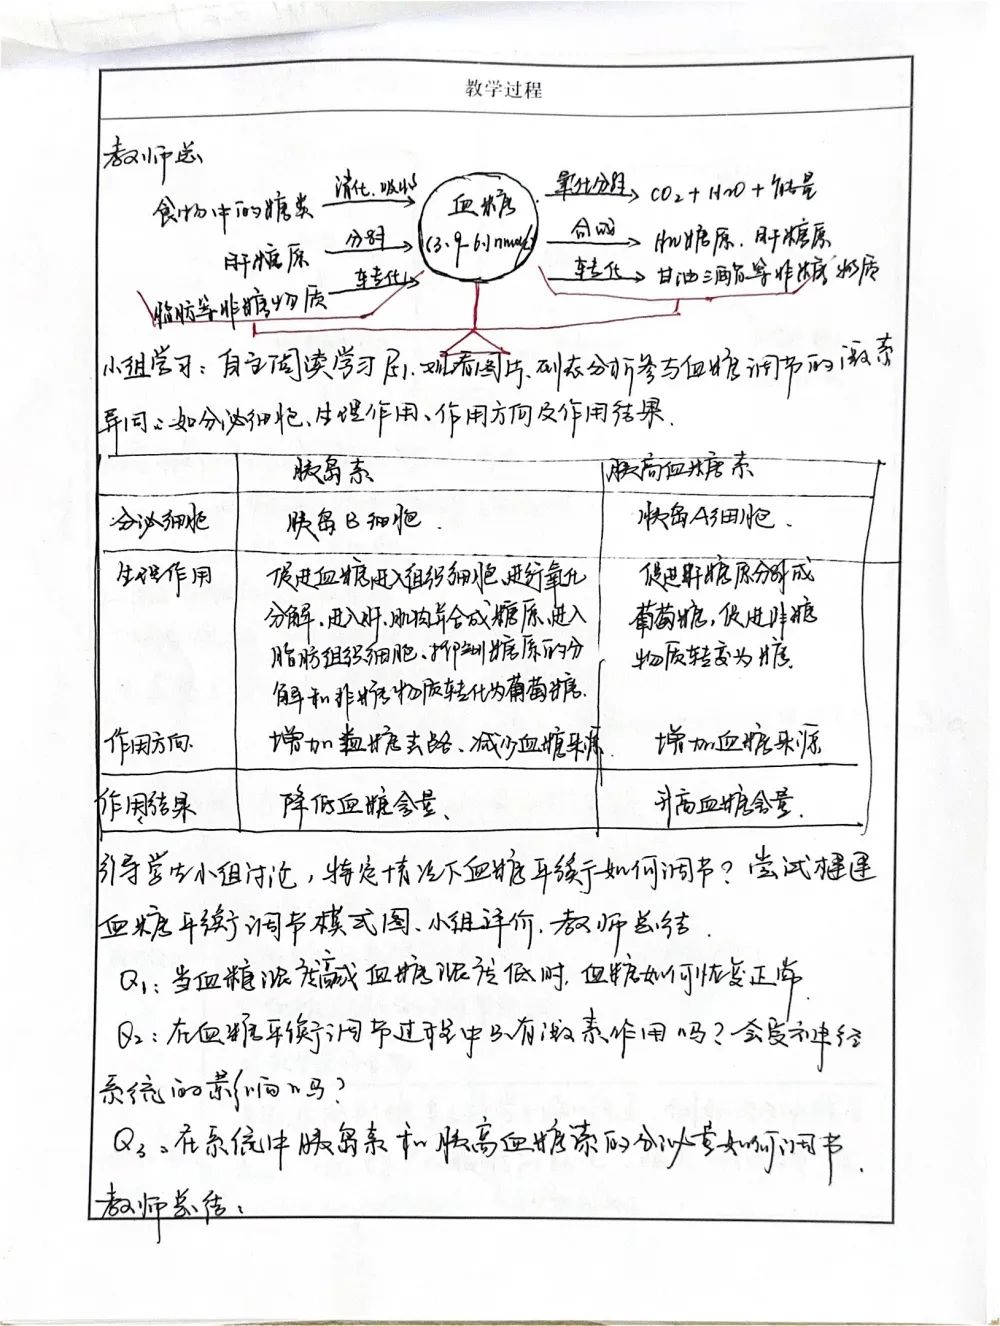 教学过程
教师总
食物中的糖类 消化、吸收 血糖 氧化分解 CO2 + H2O + 能量
肝糖原 分解 (3.9-6.1mmol/L) 合成 肌糖原、肝糖原
脂肪等非糖物质 转化 转化 甘油三酯等非糖物质
小组学习：自主阅读学习 观看图片、列表分析参与血糖调节的激素
异同：如分泌细胞、生理作用、作用方向及作用结果.
胰岛素 胰高血糖素
分泌细胞 胰岛B细胞. 胰岛A细胞.
生理作用 促进血糖进入组织细胞、进行氧化 促进肝糖原分解成
分解、进入肝、肌肉并合成糖原、进入 葡萄糖，促进非糖
脂肪组织细胞、抑制糖原的分 物质转变为糖.
解和非糖物质转化为葡萄糖.
作用方向 增加血糖去路、减少血糖来源. 增加血糖来源
作用结果 降低血糖含量、 升高血糖含量.
引导学生小组讨论，特定情况下血糖平衡如何调节？尝试構建
血糖平衡调节模式图、小组评价、教师总结.
Q1：当血糖浓度高或血糖浓度低时，血糖如何恢复正常.
Q2：在血糖平衡调节过程中只有激素作用吗？会受神经
系统的影响吗？
Q3、在系统中胰岛素和胰高血糖素的分泌是如何调节.
教师总结：